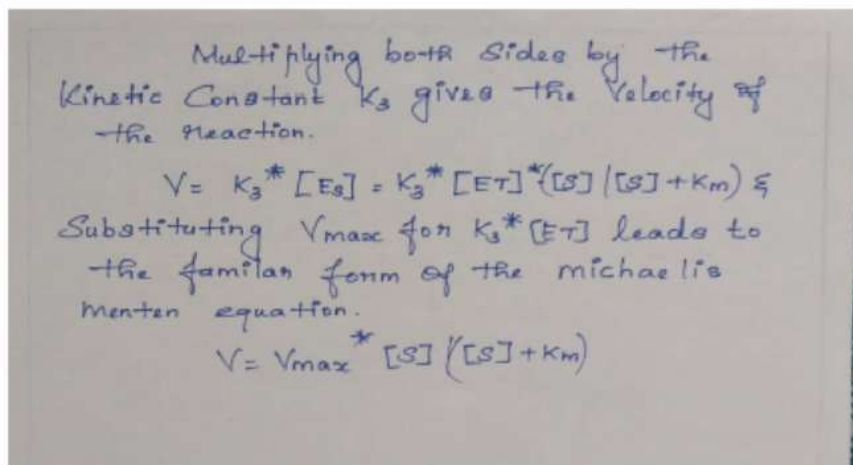 Multiplying both sides by the
Kinetic Constant K₃ gives the Velocity of
the reaction.
V = K₃* [Es] = K₃* [ET]*([S] /[S]+Km) &
Substituting Vmax for K₃* [ET] leads to
the familar form of the michaelis
menten equation.
V = Vmax* [S] /([S]+Km)